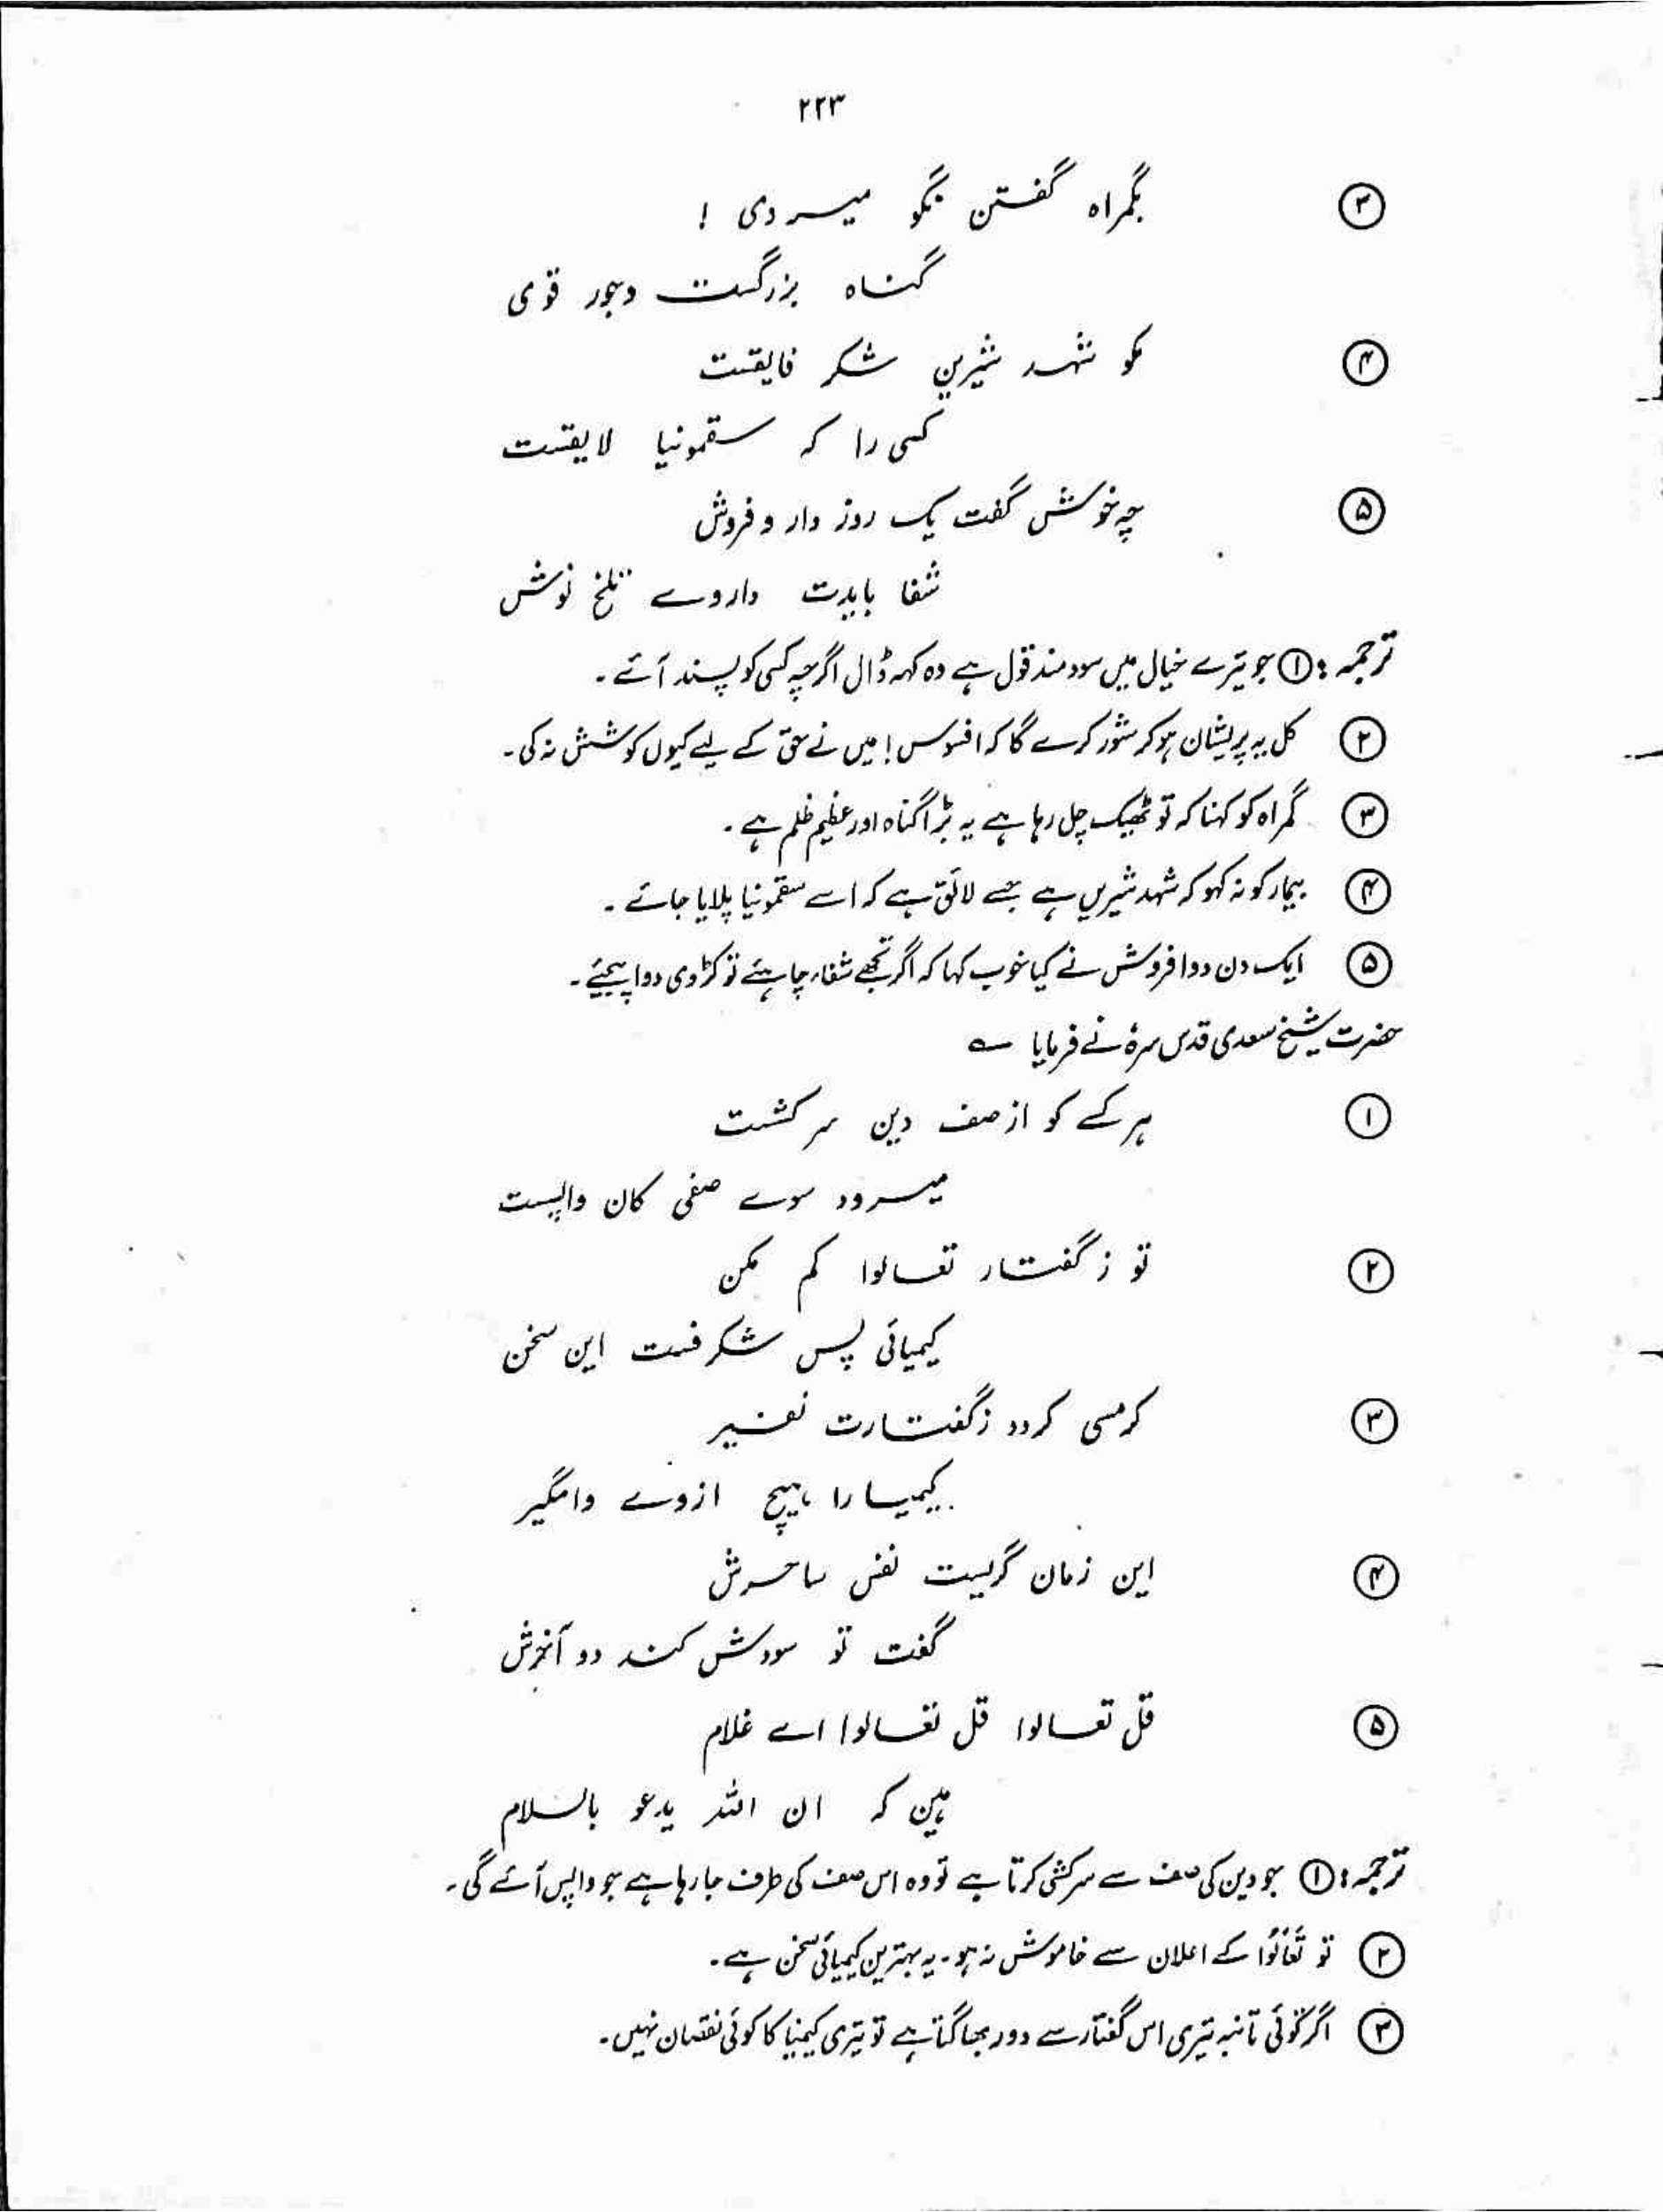 ۲۲۳
۳ بگمراہ گفتن نگو میروی !
گناہ بزرگست وجور قوی
۴ مگو شہد شیرین شکر فایقست
کسی را کہ سقمونیا لایقست
۵ چہ خوش گفت یک روز دارو فروش
شفا بایدت داروے تلخ نوش
ترجمہ : ۱ جو تیرے خیال میں سود مند قول ہے وہ کہہ ڈال اگرچہ کسی کو پسند آئے ۔
۲ کل یہ پریشان ہو کر شور کرے گا کہ افسوس ! میں نے حق کے لیے کیوں کوشش نہ کی ۔
۳ گمراہ کو کہنا کہ تو ٹھیک چل رہا ہے یہ بڑا گناہ اور عظیم ظلم ہے ۔
۴ بیمار کو نہ کہو کہ شہد شیریں ہے جسے لائق ہے کہ اسے سقمونیا پلایا جائے ۔
۵ ایک دن دوا فروش نے کیا خوب کہا کہ اگر تجھے شفاء چاہئے تو کڑوی دوا پیجئے ۔
حضرت شیخ سعدی قدس سرہٗ نے فرمایا ؎
۱ ہر کسے کو از صف دین سرکشت
میرود سوے صفی کان واپست
۲ تو ز گفتار تعالوا کم مکن
کیمیائی پس شکرفست این سخن
۳ کرمسی کردد زگفتارت نفیر
کیمیا را ہیچ ازوے وامگیر
۴ این زمان گربست نفس ساحرش
گفت تو سودش کند دو آخرش
۵ قل تعالوا قل تعالوا اے غلام
ہین کہ ان اللہ یدعو بالسلام
ترجمہ : ۱ جو دین کی صف سے سرکشی کرتا ہے تو وہ اس صف کی طرف جا رہا ہے جو واپس آئے گی ۔
۲ تو تَعَالَوْا کے اعلان سے خاموش نہ ہو ۔ یہ بہترین کیمیائی سخن ہے ۔
۳ اگر کوئی تانبہ تیری اس گفتار سے دور بھاگتا ہے تو تیری کیمیا کا کوئی نقصان نہیں ۔